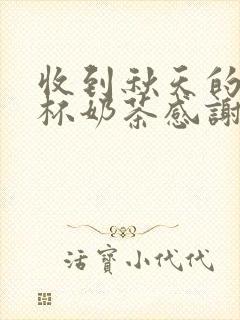 收到秋天的
杯奶茶感謝
活寶小代代